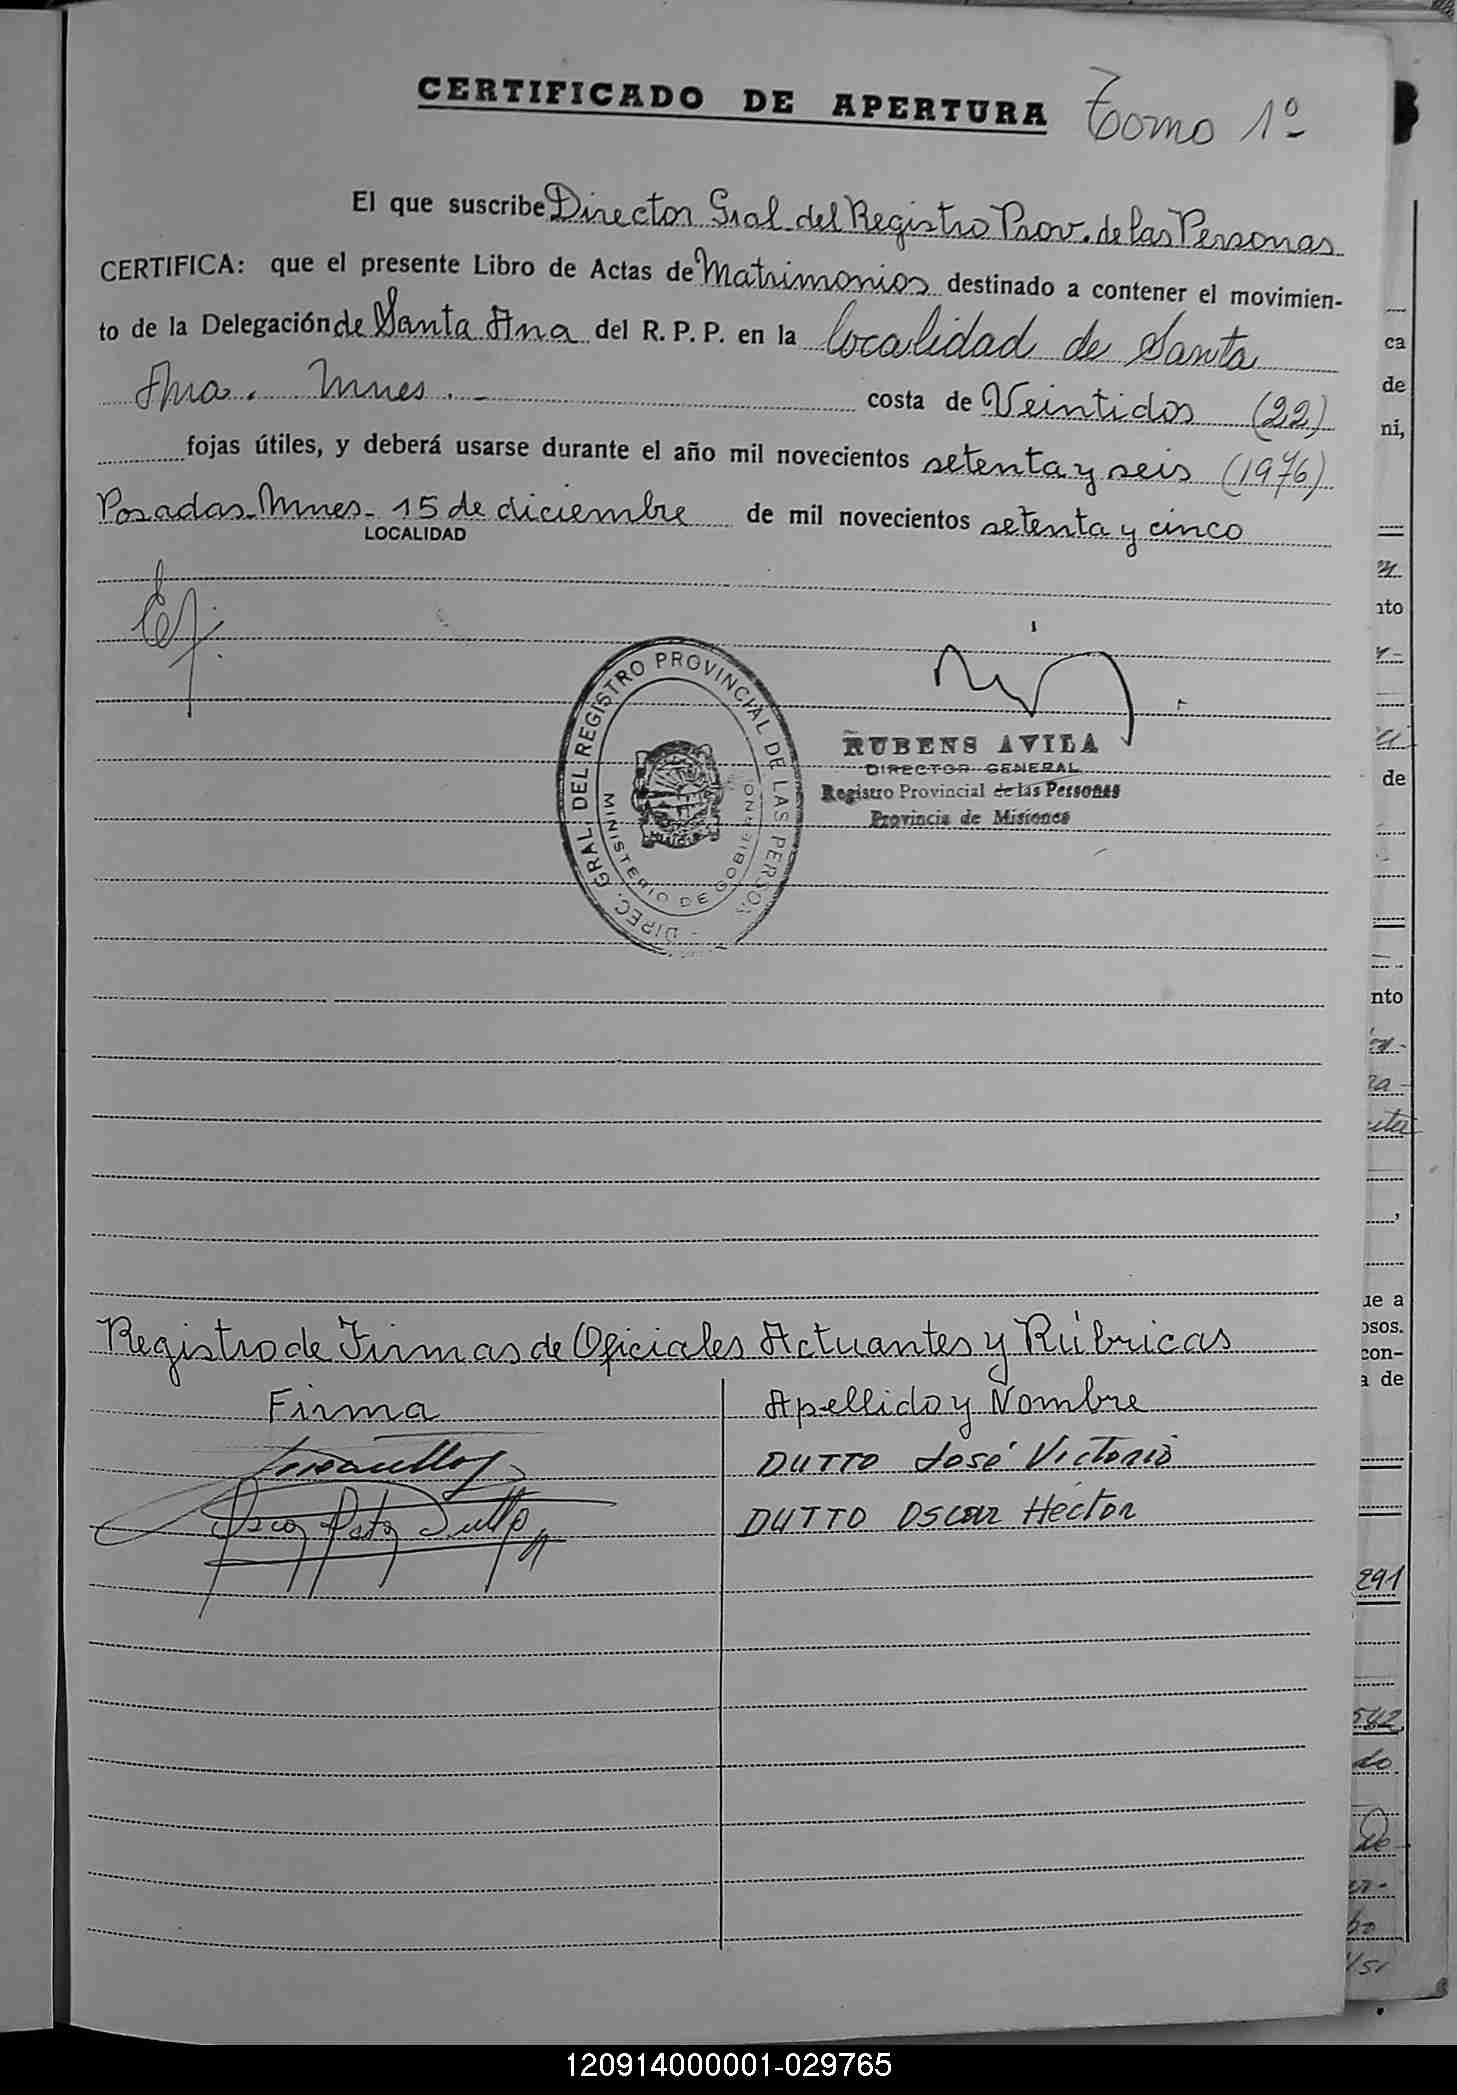 CERTIFICADO DE APERTURA Tomo 1º
El que suscribe Director Gral del Registro Prov. de las Personas
CERTIFICA: que el presente Libro de Actas de Matrimonios destinado a contener el movimien-
to de la Delegación de Santa Ana del R. P. P. en la localidad de Santa
Ana. Mnes. - costa de Veintidos (22)
fojas útiles, y deberá usarse durante el año mil novecientos setenta y seis (1976)
Posadas - Mnes - 15 de diciembre de mil novecientos setenta y cinco
LOCALIDAD
DIREC. GRAL DEL REGISTRO PROVINCIAL DE LAS PERSON
MINISTERIO DE GOBIERNO
RUBENS AVILA
DIRECTOR GENERAL
Registro Provincial de las Personas
Provincia de Misiones
Registro de Firmas de Oficiales Actuantes y Rúbricas
Firma Apellido y Nombre
DUTTO José Victorio
DUTTO Oscar Héctor
ca
de
ni,
nto
de
nto
ue a
osos.
con-
a de
291
542
do
120914000001-029765